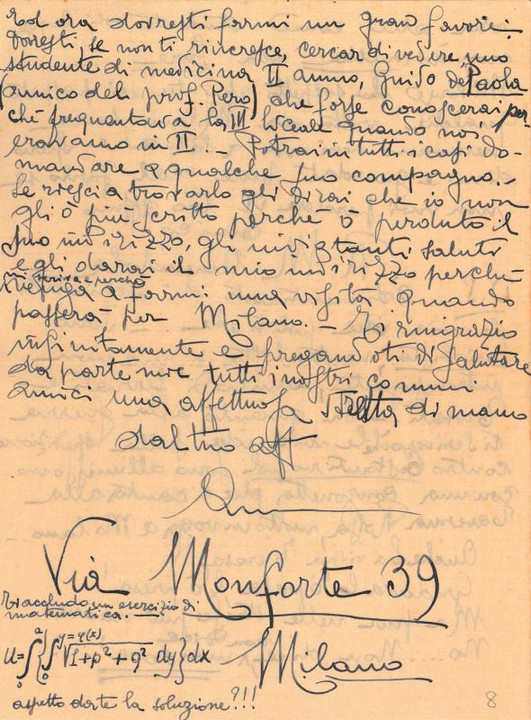 Ed ora dovresti farmi un gran favore:
Dovresti, se non ti rincresce, cercar di vedere uno
studente di medicina II anno, Guido de Paola
(amico del prof. Pero) che forse conoscerai per
ché frequentava la III liceale quando noi
eravamo in II. — Potrai in tutti i casi do-
mandare a qualche suo compagno. –
Se riesci a trovarlo gli dirai che io non
gli ò più scritto perché ò perduto il
suo indirizzo, gli invii tanti saluti
e gli darai il mio indirizzo perché
mi scriva e perché
venga a farmi una visita quando
passerà per Milano. — Ti ringrazio
infinitamente e pregandoti di salutare
da parte mia tutti i nostri comuni
amici una affettuosa stretta di mano
dal tuo aff
Via Monforte 39
Milano
Ti accludo un esercizio di
matematica. –
u = ∫₀ᵃ{∫₀^{y=φ(x)} √1+p²+q² dy}dx
aspetto da te la soluzione?!!!
8